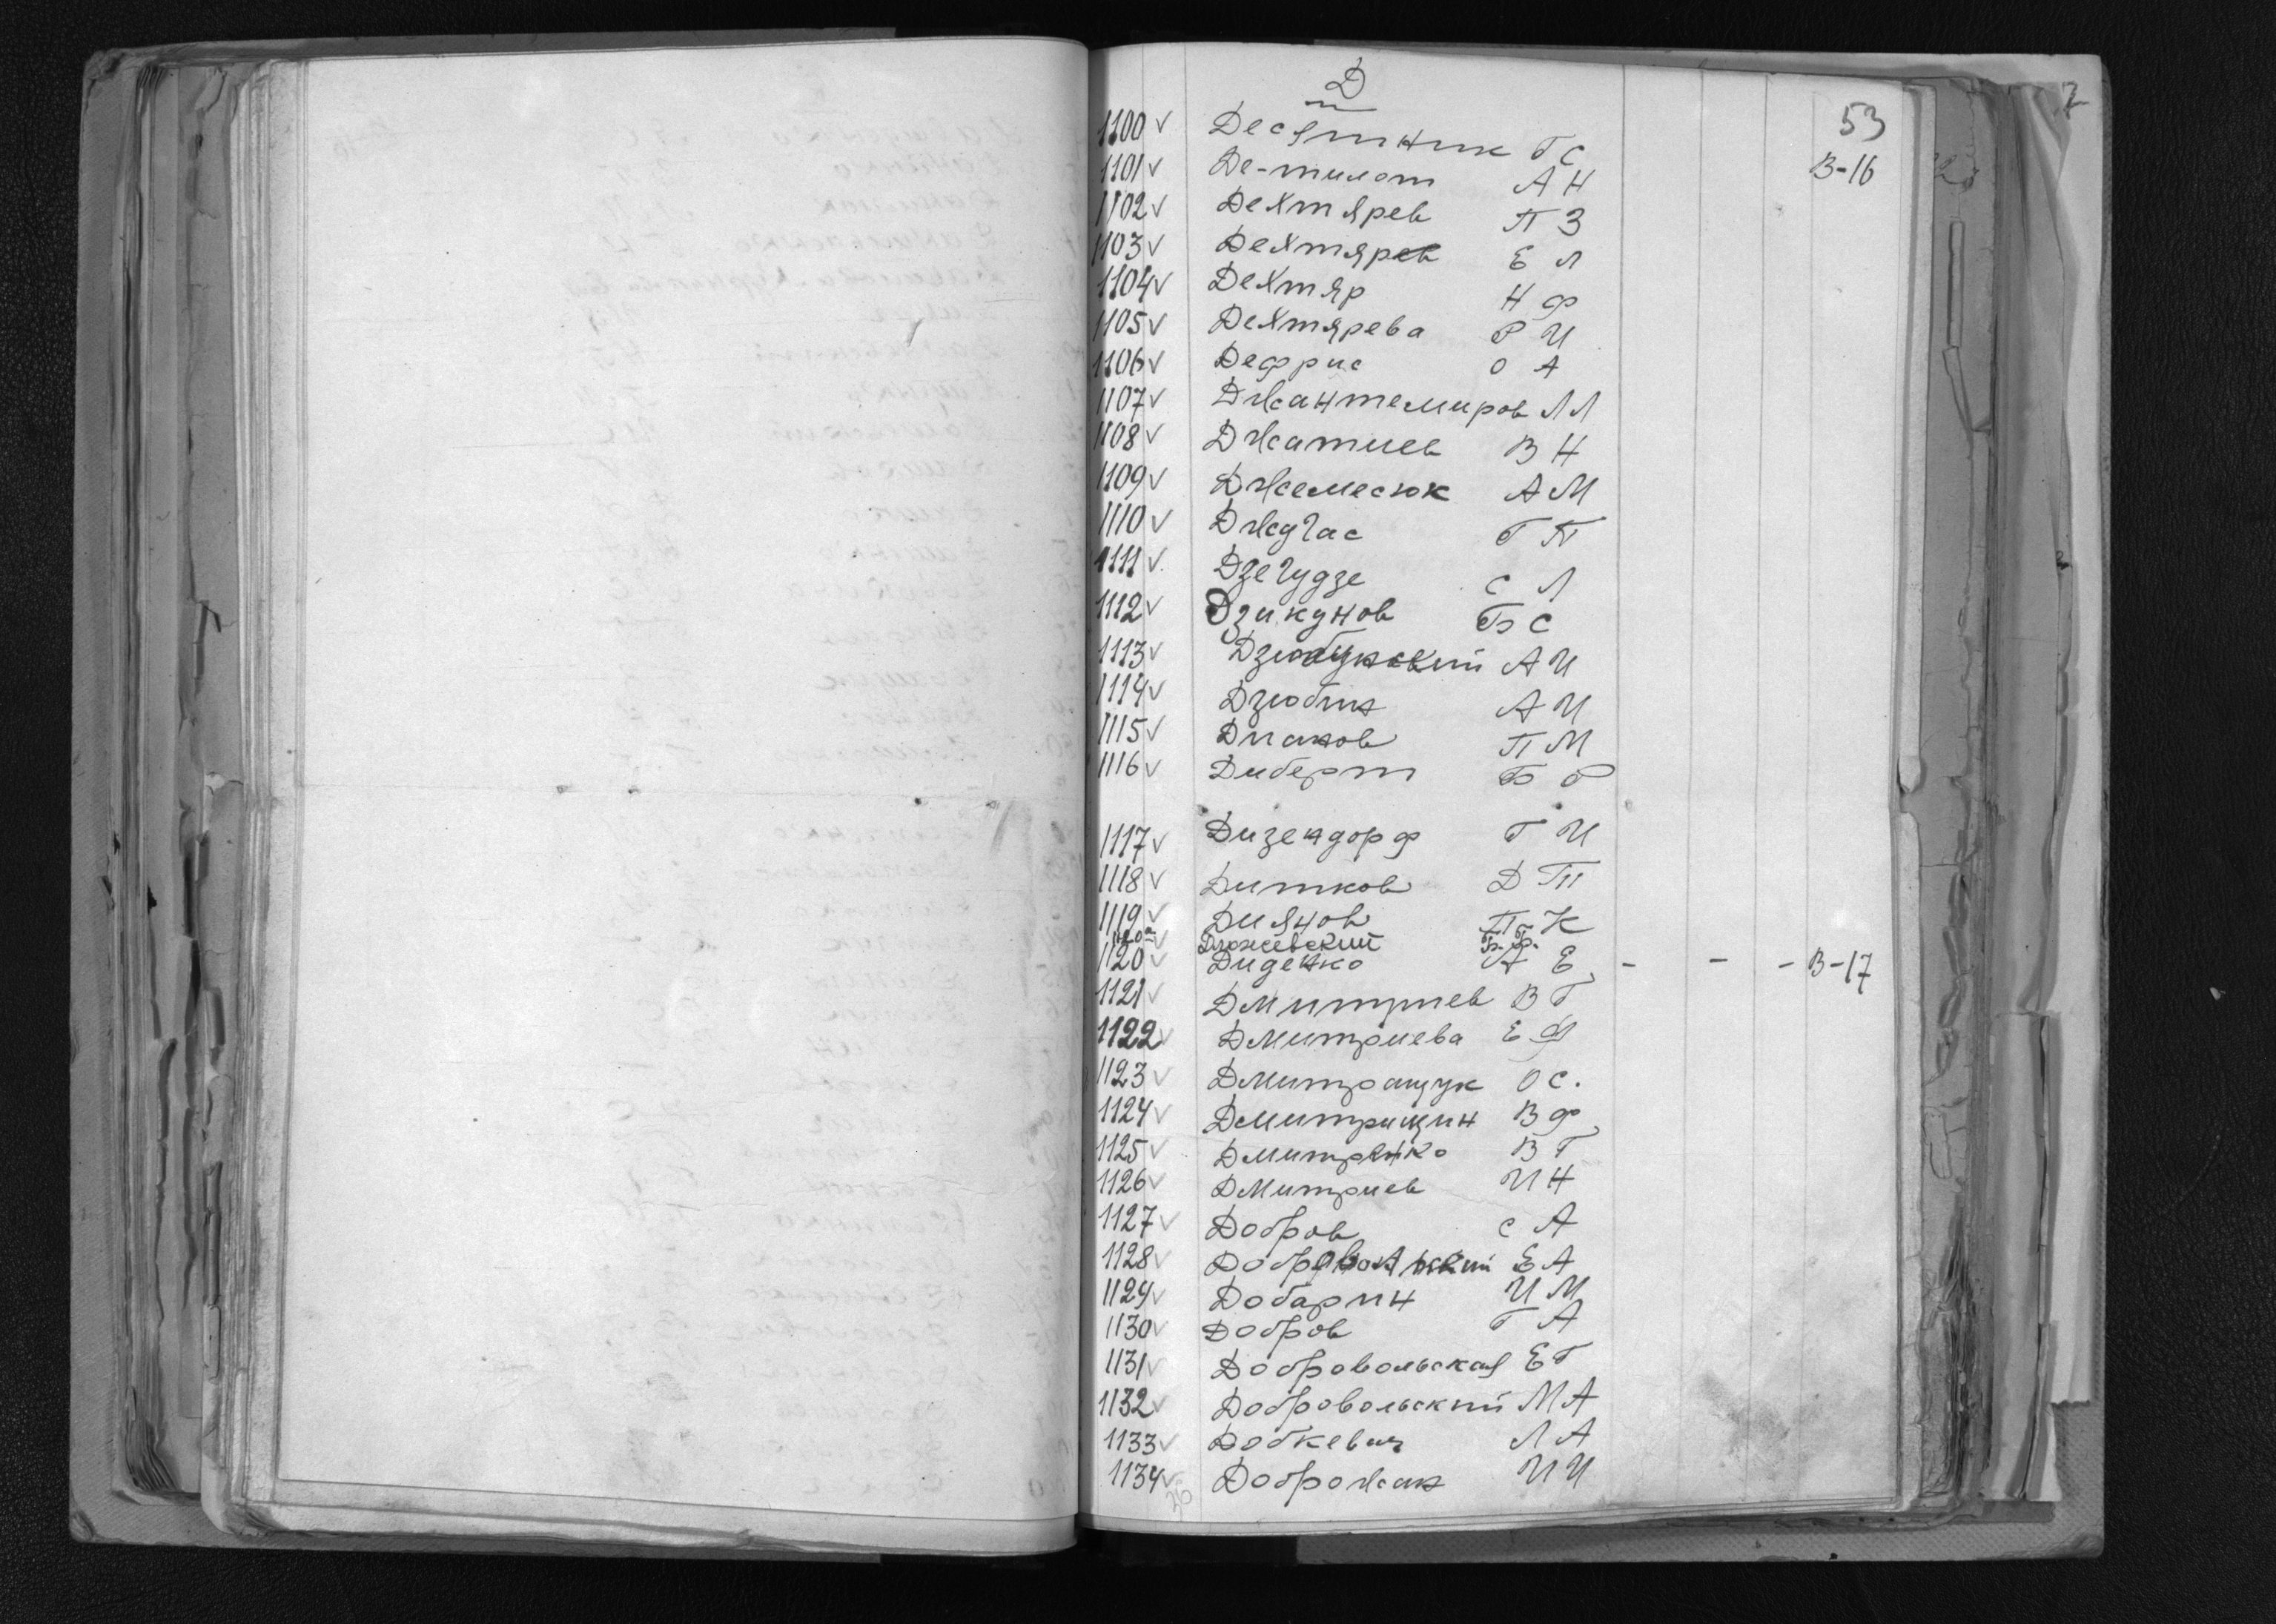 Д
53
1100 v Десятник Г С
В-16
1101 v Де-тилот А Н
1102 v Дехтярев П З
1103 v Дехтярев Е Л
1104 v Дехтяр Н Ф
1105 v Дехтярева Р И
1106 v Дефрис О А
1107 v Джантемиров Л Л
1108 v Джатиев В Н
1109 v Джемесюк А М
1110 v Джугас Г П
1111 v Дзегудзе С Л
1112 v Дзикунов Б С
1113 v Дзюбунский А И
1114 v Дзюбин А И
1115 v Диаков П М
1116 v Диберт Б
1117 v Дизендорф Г И
1118 v Дитков Д П
1119 v Диянов П К
1120а v Дложевский Б. Ф.
1120 v Диденко А Е - - - В-17
1121 v Дмитриев В Г
1122 v Дмитриева Е Ф
1123 v Дмитращук О С.
1124 v Дмитрищин В Ф
1125 v Дмитренко В Г
1126 v Дмитриев И Н
1127 v Добров С А
1128 v Добровольский Е А
1129 v Добарин И М
1130 v Добров Г А
1131 v Добровольская Е Г
1132 v Добровольский М А
1133 v Добкевич Л А
1134 v Доброжан И И
26